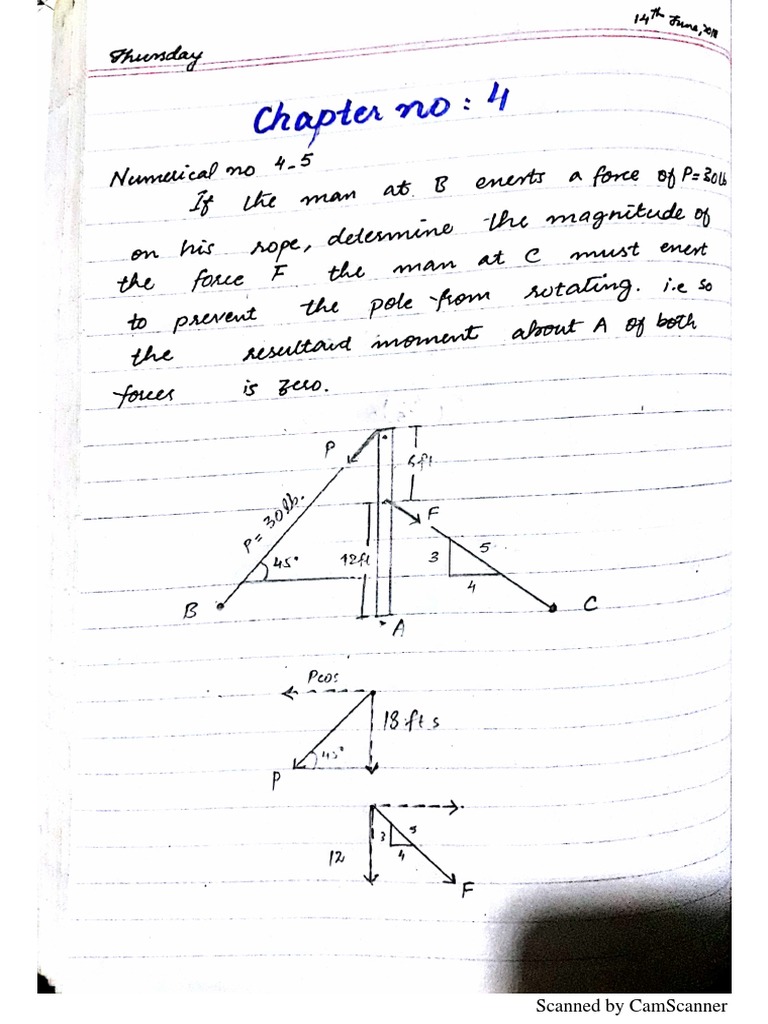 14th June, 2018
Thursday
Chapter no: 4
Numerical no 4-5
If the man at B enerts a force of P=30lb
on his rope, determine the magnitude of
the force F the man at C must enert
to prevent the pole from rotating. i.e so
the resultant moment about A of both
forces is zero.
P
6ft
P=30lb.
F
45°
12ft
3
5
4
B
C
A
Pcos
18fts
45°
P
3
5
4
12
F
Scanned by CamScanner